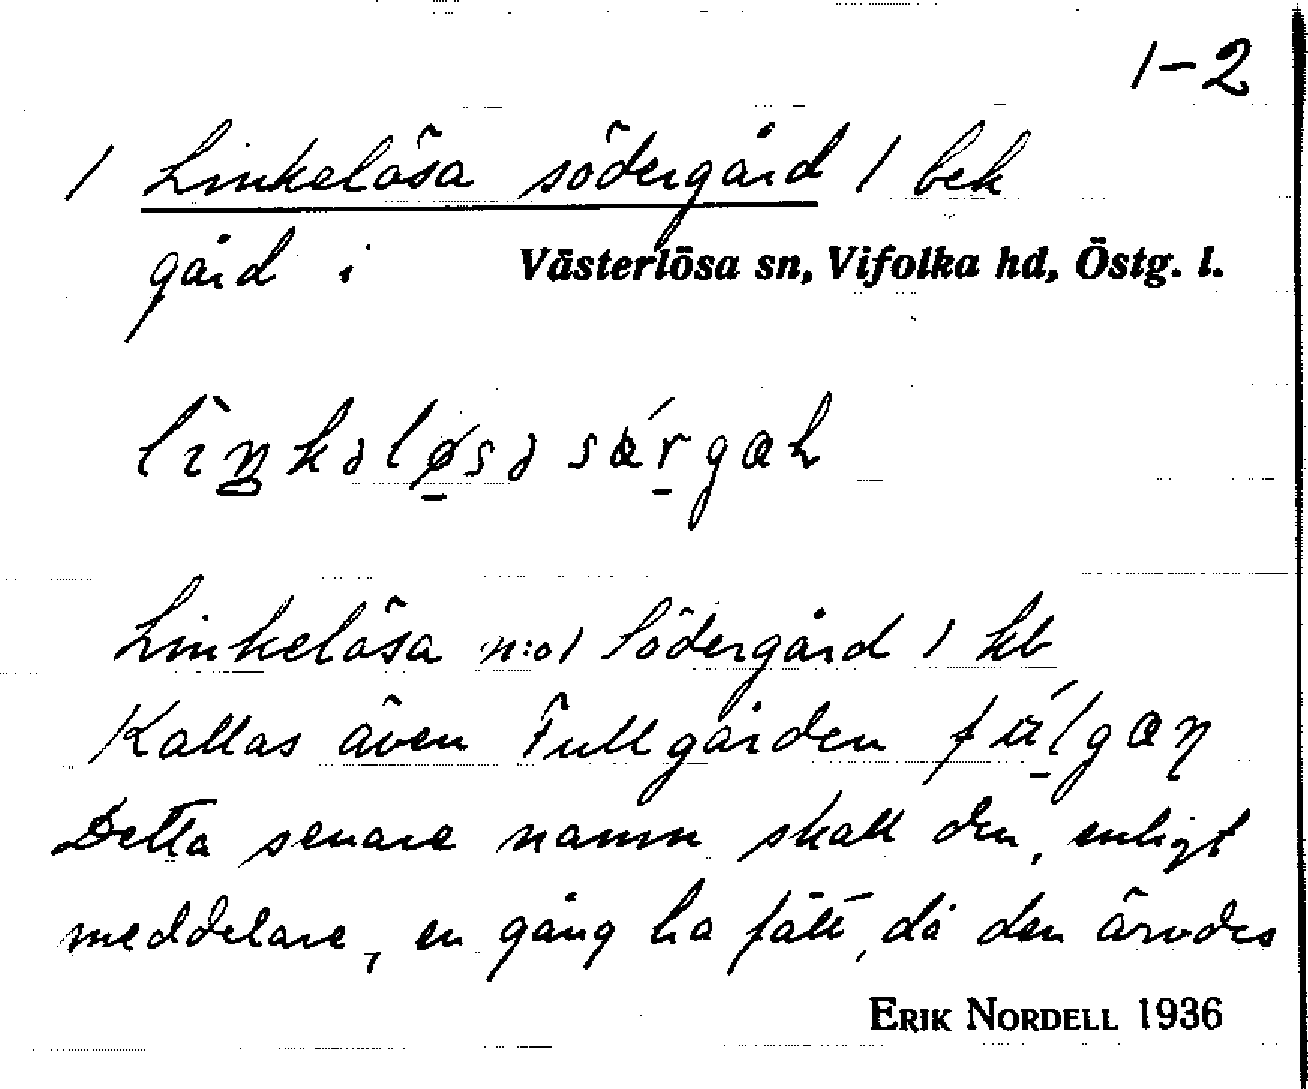 1-2
1 Linkelösa södergård 1 bek
gård i Västerlösa sn, Vifolka hd, Östg. l.
Linkelösa n:o1 Södergård 1 kb
Kallas även Fullgården
Detta senare namn skall den, enligt
meddelare, en gång ha fått, då den ärvdes
ERIK NORDELL 1936